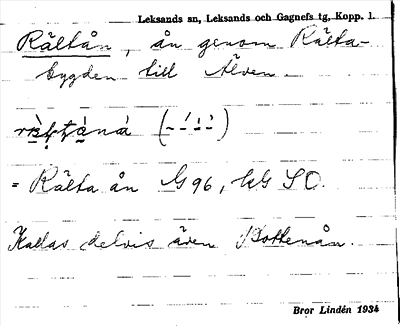 Leksands sn, Leksands och Gagnefs tg, Kopp. l.
Rältån, ån genom Rälta-
bygden till Älven.
= Rälta ån G 96, kG SO.
Kallas delvis även Bottenån.
Bror Lindén 1934